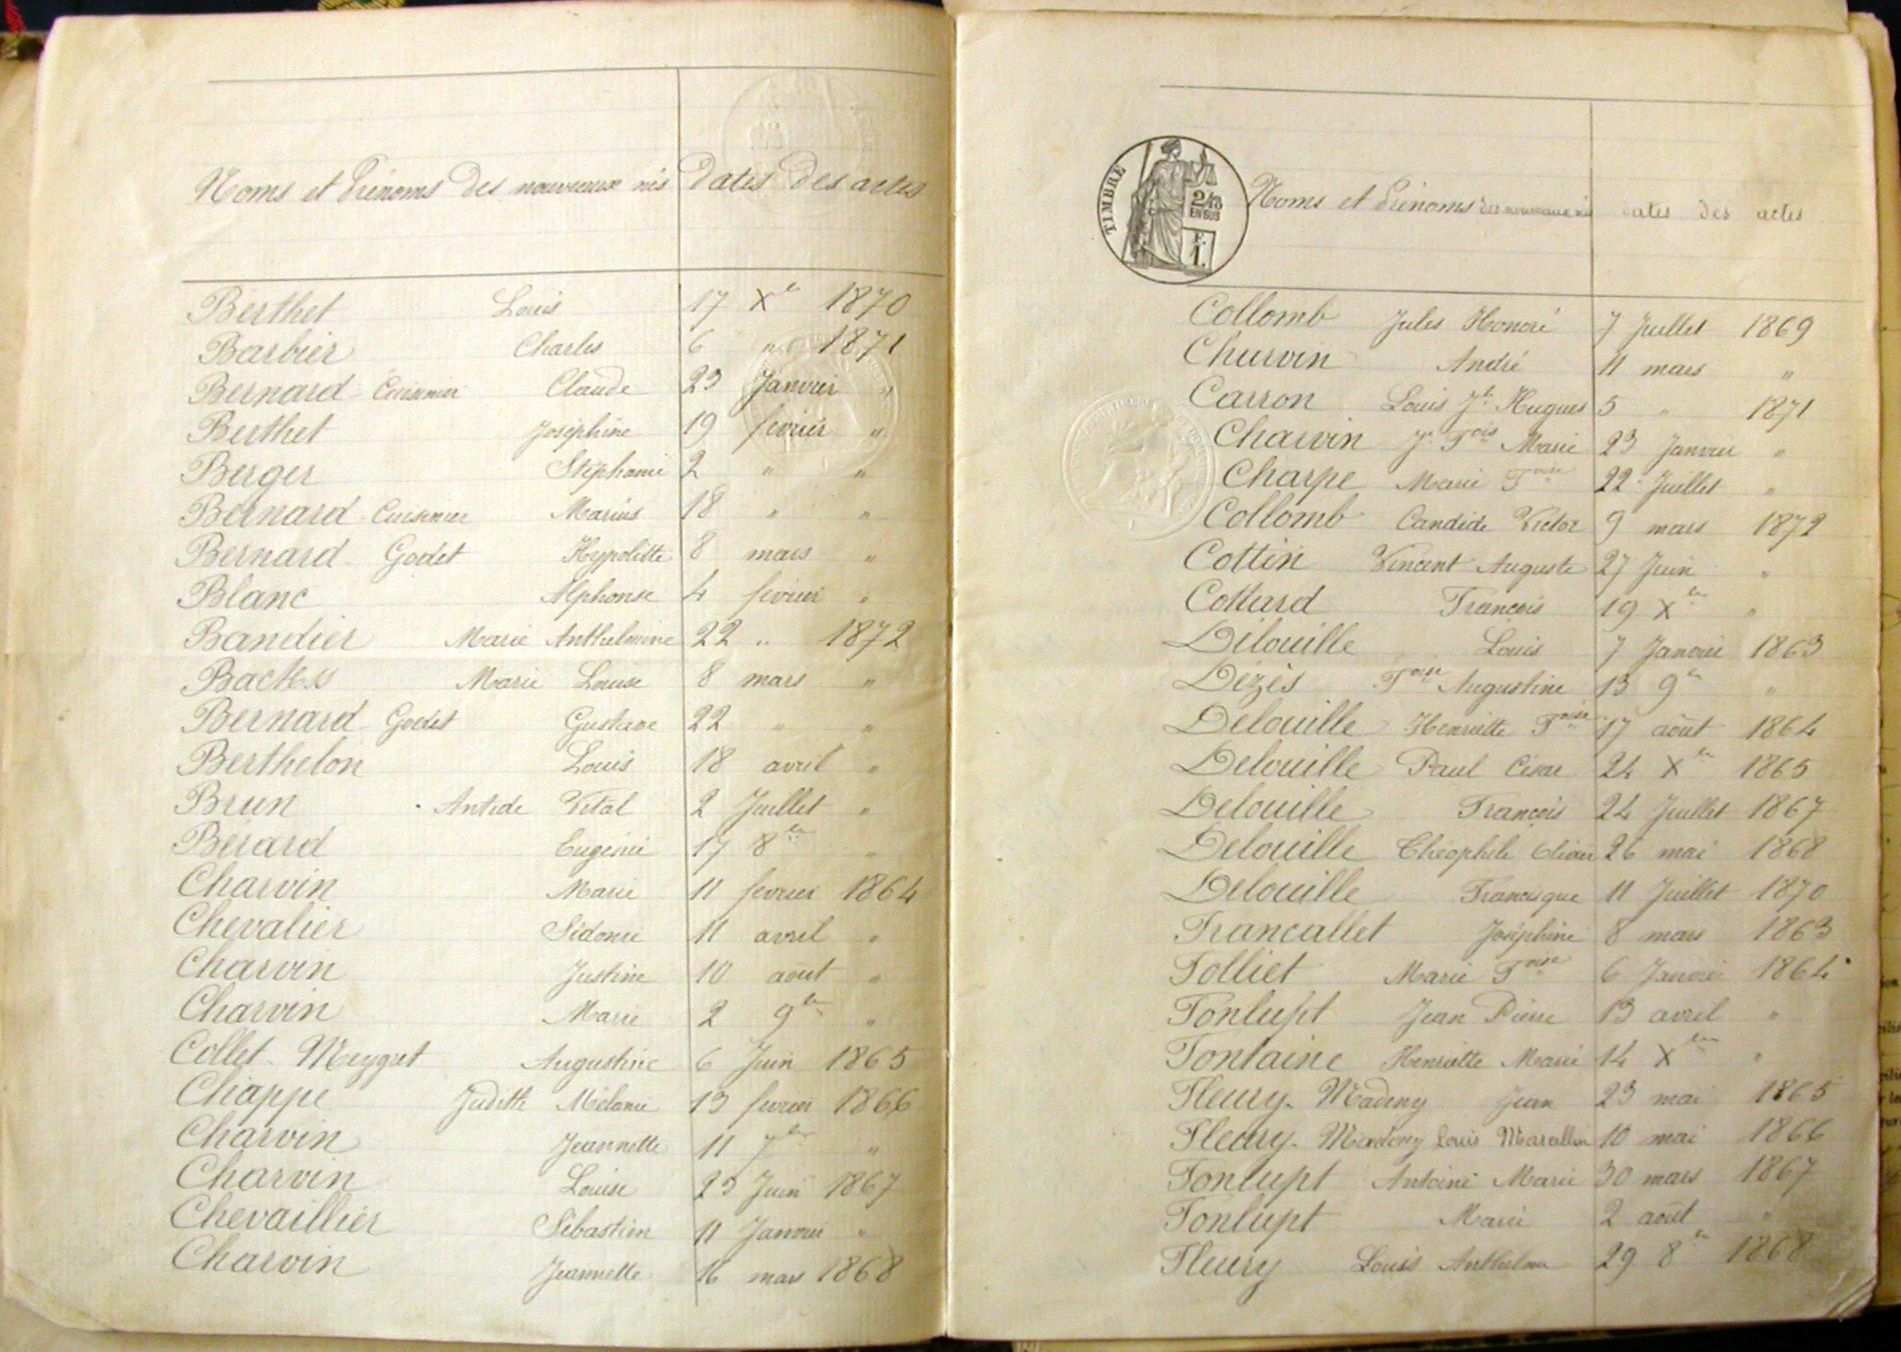 Noms et Prénoms des nouveaux nés dates des actes
Berthet Louis 17 Xre 1870
Barbier Charles 6 " 1871
Bernard Cuisinier Claude 23 Janvier "
Berthet Joséphine 19 février "
Berger Stéphanie 2 " "
Bernard Cuisinier Marius 18 " "
Bernard Godet Hypolitte 8 mars "
Blanc Alphonse 4 février "
Bandier Marie Anthelmine 22 " 1872
Marie Louise 8 mars "
Bernard Godet Gustave 22 " "
Berthelon Louis 18 avril "
Brun Antide Vital 2 Juillet "
Berard Eugénie 17 8bre "
Charvin Marie 11 février 1864
Chevalier Sidonie 11 avril "
Charvin Justine 10 août "
Charvin Marie 2 9bre "
Collet-Meygret Augustine 6 Juin 1865
Chappe Judith Mélanie 13 février 1866
Charvin Jeannette 11 7bre "
Charvin Louise 23 Juin 1867
Chevaillier Sébastien 11 Janvier "
Charvin Jeannette 16 mars 1868
TIMBRE
2/10 EN SUS
F. 1.
Noms et Prénoms des nouveaux nés dates des actes
Collomb Jules Honoré 7 Juillet 1869
Charvin André 11 mars "
Carron Louis Jh Hugues 5 " 1871
Charvin Jh Fois Marie 23 Janvier "
Charpe Marie Foise 22 Juillet "
Collomb Candide Victor 9 mars 1872
Cottin Vincent Auguste 27 Juin "
Cottard François 19 Xbre "
Délouille Louis 7 Janvier 1863
Dézès Foise Augustine 13 9bre "
Delouille Henriette Foise 17 août 1864
Delouille Paul César 24 Xbre 1865
Delouille François 24 Juillet 1867
Delouille Théophile 26 mai 1868
Delouille Francisque 11 Juillet 1870
Francallet Joséphine 8 mars 1863
Folliet Marie Foise 6 Janvier 1864
Fonlupt Jean Pierre 13 avril "
Fontaine Henriette Marie 14 Xbre "
Fleury-Madeny Jean 23 mai 1865
Fleury-Madeny Louis Marcellin 10 mai 1866
Fonlupt Antoine Marie 30 mars 1867
Fonlupt Marie 2 août "
Fleury Louis Anthelme 29 8bre 1868